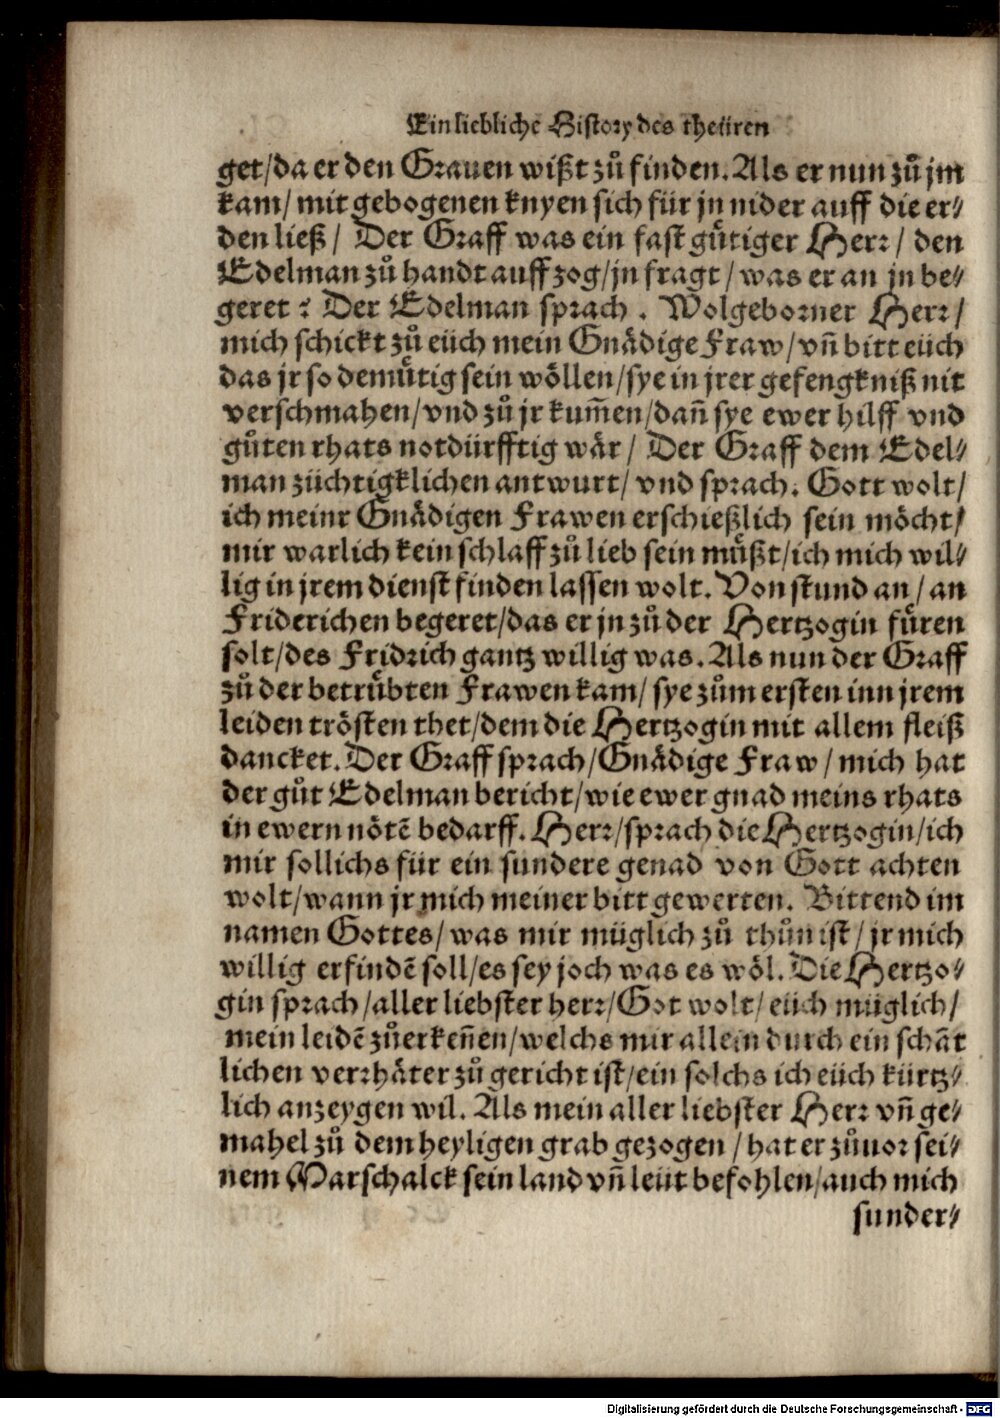 Ein liebliche History des theüren
get/da er den Grauen wißt zů finden. Als er nun zů jm
kam/ mit gebogenen knyen sich für jn nider auff die er⸗
den ließ/ Der Graff was ein fast gůtiger Herr/ den
Edelman zů handt auff zog/jn fragt/ was er an jn be⸗
geret? Der Edelman sprach. Wolgeborner Herr/
mich schickt zů eüch mein Gnådige Fraw/vñ bitt eüch
das jr so demůtig sein wöllen/sye in jrer gefengkniß nit
verschmahen/vnd zů jr kum̃en/dañ sye ewer hilff vnd
gůten rhats notdürfftig wår/ Der Graff dem Edel⸗
man züchtigklichen antwurt/ vnd sprach. Gott wolt/
ich meinr Gnådigen Frawen erschießlich sein möcht/
mir warlich kein schlaff zů lieb sein můßt/ich mich wil⸗
lig in jrem dienst finden lassen wolt. Von stund an/ an
Friderichen begeret/das er jn zů der Hertzogin fůren
solt/des Fridrich gantz willig was. Als nun der Graff
zů der betrůbten Frawen kam/ sye zům ersten inn jrem
leiden trösten thet/dem die Hertzogin mit allem fleiß
dancket. Der Graff sprach/Gnådige Fraw/ mich hat
der gůt Edelman bericht/wie ewer gnad meins rhats
in ewern nötẽ bedarff. Herr/sprach die Hertzogin/ich
mir sollichs für ein sundere genad von Gott achten
wolt/wann jr mich meiner bitt gewerten. Bittend im
namen Gottes/ was mir müglich zů thůn ist/ jr mich
willig erfindẽ soll/es sey joch was es wöl. Die Hertzo⸗
gin sprach/aller liebster herr/Got wolt/ eüch müglich/
mein leidẽ zůerkeñen/welchs mir allein durch ein schåt
lichen verrhåter zů gericht ist/ein solchs ich eüch kürtz⸗
lich anzeygen wil. Als mein aller liebster Herr vñ ge⸗
mahel zů dem heyligen grab gezogen/ hat er zůuor sei⸗
nem Marschalck sein land vñ leüt befohlen/auch mich
sunder⸗
Digitalisierung gefördert durch die Deutsche Forschungsgemeinschaft - DFG